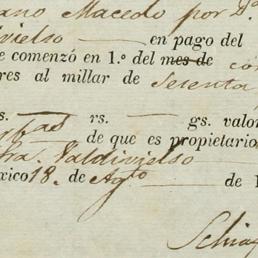 ano Macedo por Da.
vielso — en pago del
e comenzó en 1.º del mes de co
res al millar de Setenta
s. — rs. — gs. valor
de que es propietario
ra. Valdivielso
xico 18. de Agto — de 1
Schia